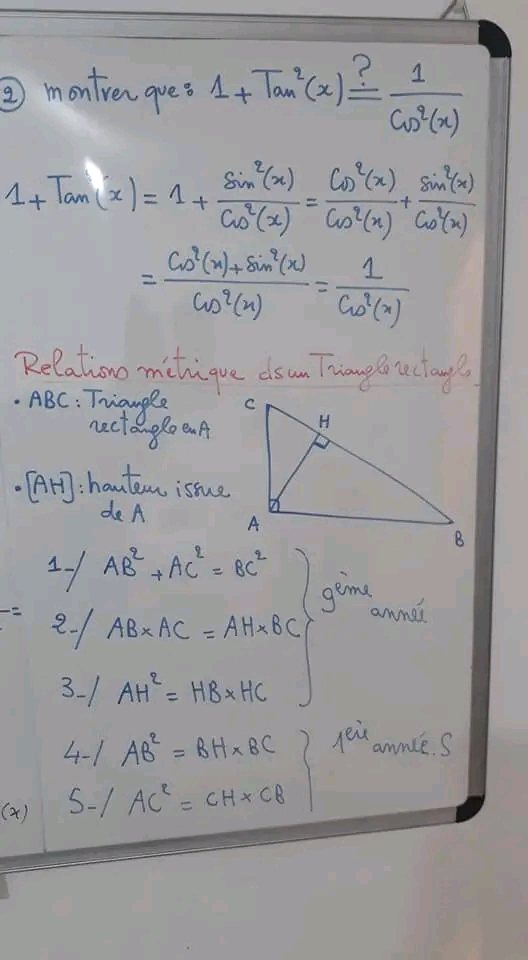 ② montrer que : 1 + Tan²(x) ?= 1/Cos²(x)
1 + Tan²(x) = 1 + Sin²(x)/Cos²(x) = Cos²(x)/Cos²(x) + Sin²(x)/Cos²(x)
= Cos²(x) + Sin²(x)/Cos²(x) = 1/Cos²(x)
Relations métrique ds un Triangle rectangle
• ABC : Triangle
rectangle en A
C
H
A
B
• [AH] : hauteur issue
de A
1-/ AB² + AC² = BC²
2-/ AB × AC = AH × BC
3-/ AH² = HB × HC
9ème
année
4-/ AB² = BH × BC
5-/ AC² = CH × CB
1ère année. S
=
(x)